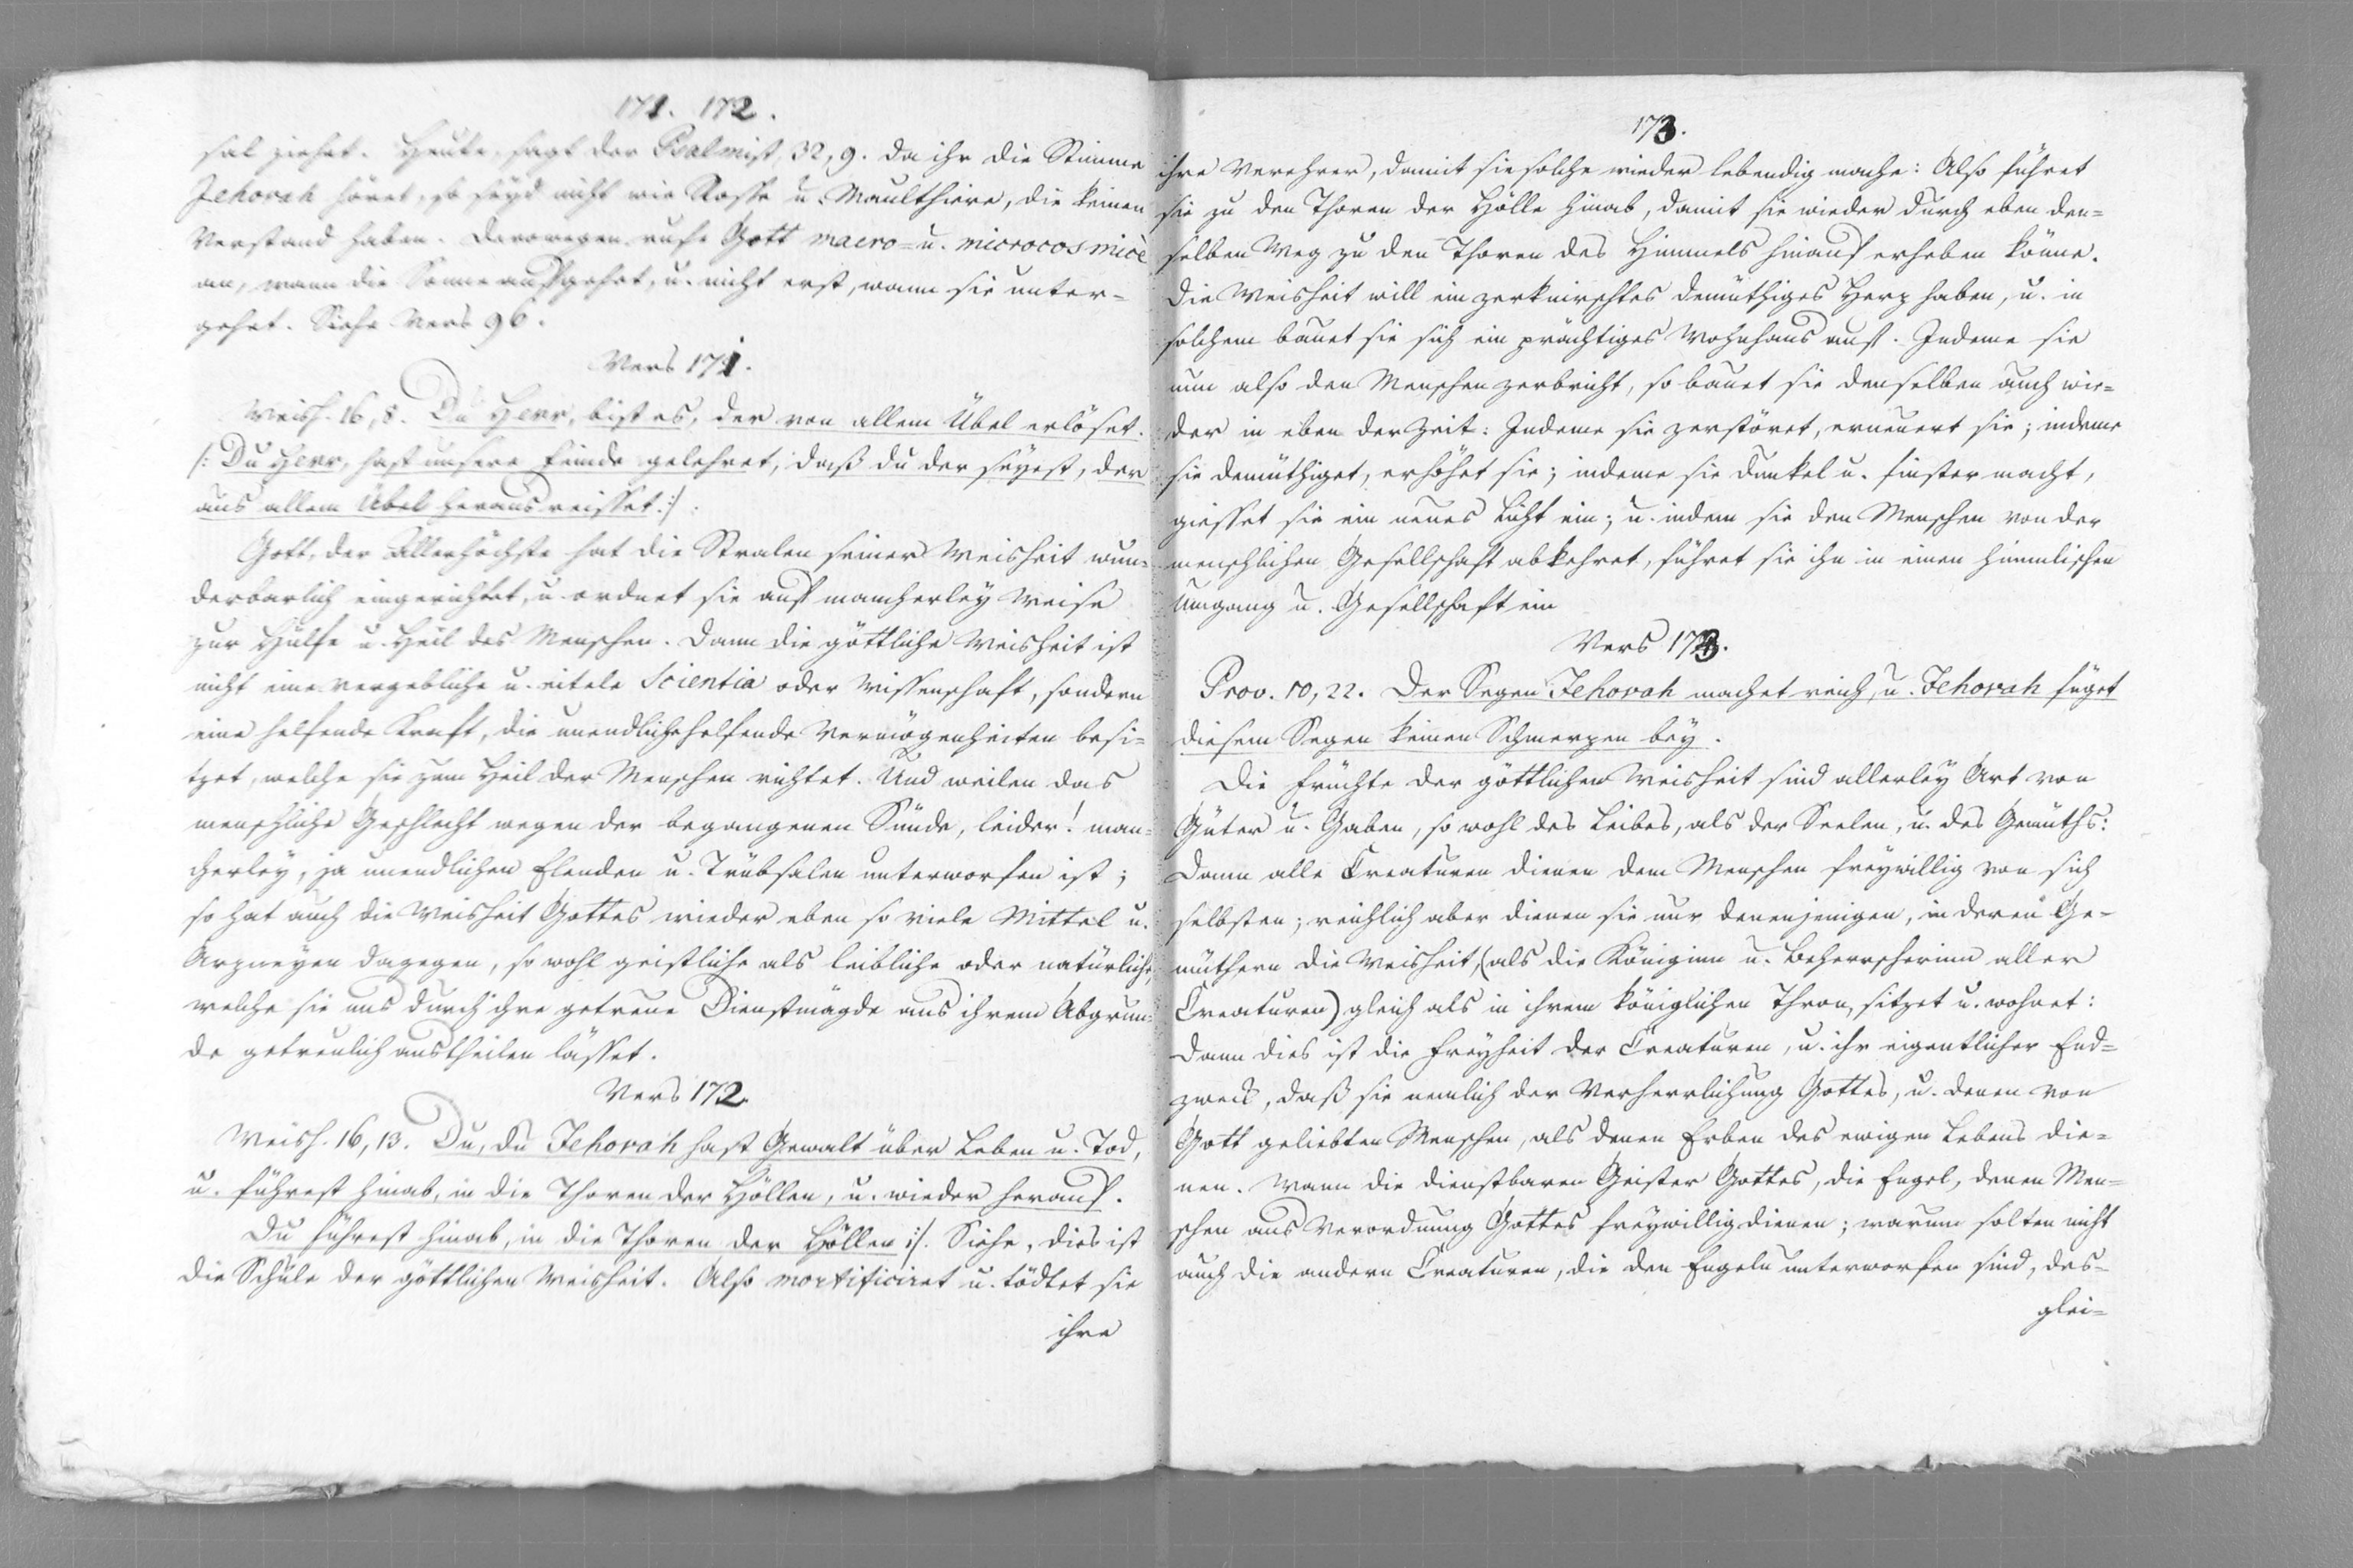 171. 172.
sal ziehet. Heute, sagt der Psalmist, 32, 9. da ihr die Stimme
Jehovah höret, so seyd nicht wie Rosse u. Maulthiere, die keinen
Verstand haben. Derowegen rufe Gott macro- u. microcosmicè
an, wann die Sonne aufgehet, u. nicht erst, wann sie unter-
gehet. Siehe Vers 96.
Vers 171.
Weish. 16, 8. Du Herr, bist es, der von allem Übel erlöset.
/: Du Herr, hast unsere Feinde gelehret, daß du der seyest, der
aus allem Übel herausreisset. :/
Gott, der Allerhöchste hat die Stralen seiner Weisheit wun-
derbarlich eingerichtet, u. ordnet sie auf mancherley Weise
zur Hülfe u. Heil des Menschen. Dann die göttliche Weisheit ist
nicht eine vergebliche u. eitele Scientia oder Wissenschaft, sondern
eine helfende Kraft, die unendliche helfende Vermögenheiten besi-
tzet, welche sie zum Heil der Menschen richtet. Und weilen das
menschliche Geschlecht wegen der begangenen Sünde, leider! man-
cherley, ja unendlichen Elenden u. Trübsalen unterworfen ist;
so hat auch die Weisheit Gottes wieder eben so viele Mittel u.
Arzneyen dagegen, so wohl geistliche als leibliche oder natürliche,
welche sie uns durch ihre getreue Dienstmägde aus ihrem Abgrun-
de getreulich austheilen lässet.
Vers 172.
Weish. 16, 13. Du, du Jehovah hast Gewalt über Leben u. Tod,
u. führest hinab, in die Thoren der Höllen, u. wieder herauf.
Du führest hinab, in die Thoren der Höllen :/. Siehe, dies ist
die Schule der göttlichen Weisheit. Also mortificiret u. tödtet sie
ihre
173.
ihre Verehrer, damit sie solche wieder lebendig mache: Also führet
sie zu den Thoren der Hölle hinab, damit sie wieder durch eben den-
selben Weg zu den Thoren des Himmels hinauf erheben könne.
Die Weisheit will ein zerknirschtes demüthiges Herz haben, u. in
solchem bauet sie sich ein prächtiges Wohnhaus auf. Indeme sie
nun also den Menschen zerbricht, so bauet sie denselben auch wie-
der in eben der Zeit: Indeme sie zerstöret, erneuert sie; indeme
sie demüthiget, erhöhet sie; indeme sie dunkel u. finster macht,
giesset sie ein neues Licht ein; u. indem sie den Menschen von der
menschlichen Gesellschaft abkehret, führet sie ihn in einen himmlischen
Umgang u. Gesellschaft ein
Vers 173.
Prov. 10, 22. Der Segen Jehovah machet reich, u. Jehovah füget
diesem Segen keinen Schmerzen bey.
Die Früchte der göttlichen Weisheit sind allerley Art von
Güter u. Gaben, so wohl des Leibes, als der Seelen, u. des Gemüths:
Dann alle Creaturen dienen dem Menschen freywillig von sich
selbsten; reichlich aber dienen sie nur denenjenigen, in deren Ge-
müthern die Weisheit, (als die Königinn u. Beherrscherinn aller
Creaturen) gleich als in ihrem königlichen Thron, sitzet u. wohnet:
Dann dies ist die Freyheit der Creaturen, u. ihr eigentlicher End-
zweck, daß sie nemlich der Verherrlichung Gottes, u. denen von
Gott geliebten Menschen, als denen Erben des ewigen Lebens die-
nen. Wann die dienstbaren Geister Gottes, die Engel, denen Men-
schen aus Verordnung Gottes freywillig dienen; warum solten nicht
auch die andern Creaturen, die den Engeln unterworfen sind, des-
glei-